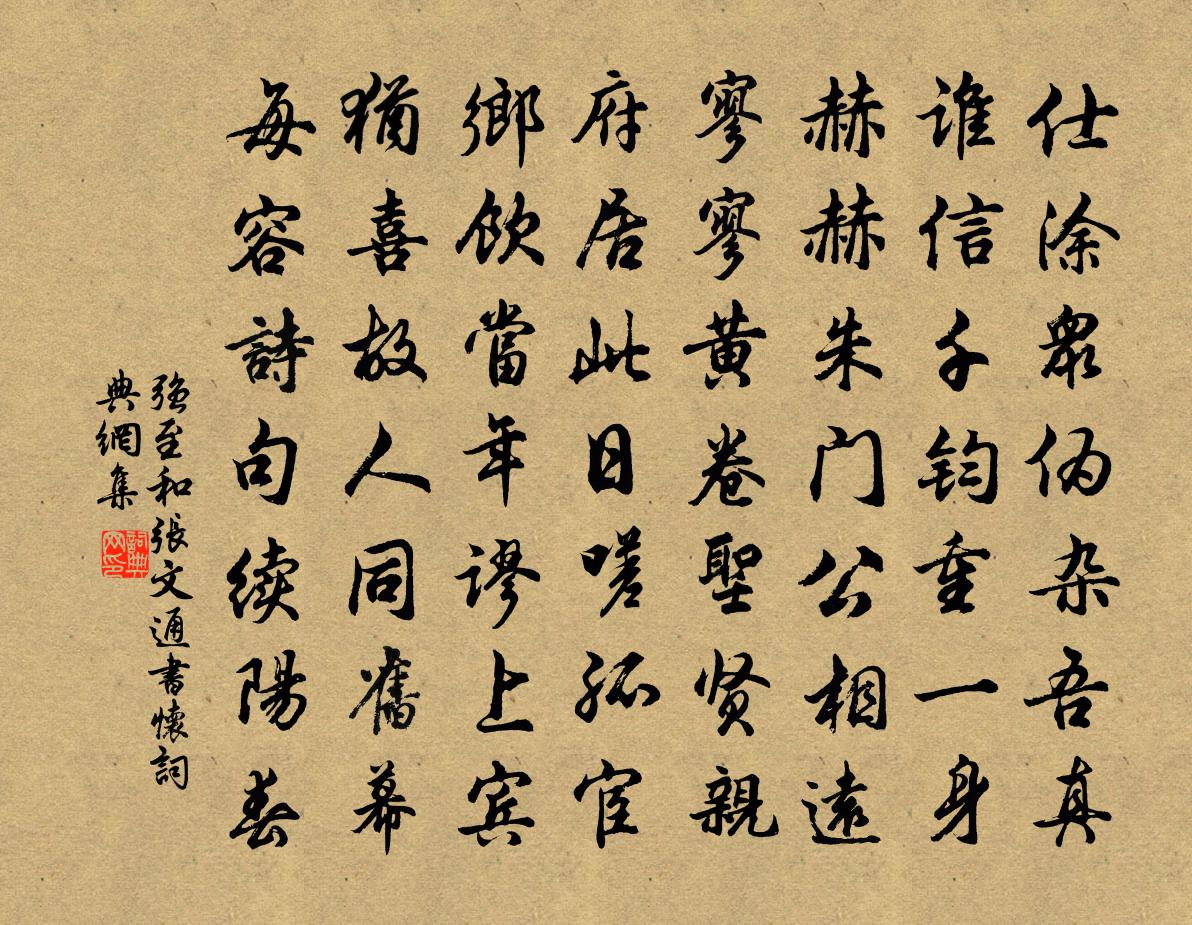 仕涂眾伪杂吾真
谁信千钧重一身
赫赫朱门公相遠
寥寥黄卷聖贤親
府居此日嗟孤宦
鄉飲當年谬上宾
猶喜故人同舊幕
每容詩句续陽春
強至和张文通書懷詞
典網集
詞典网印